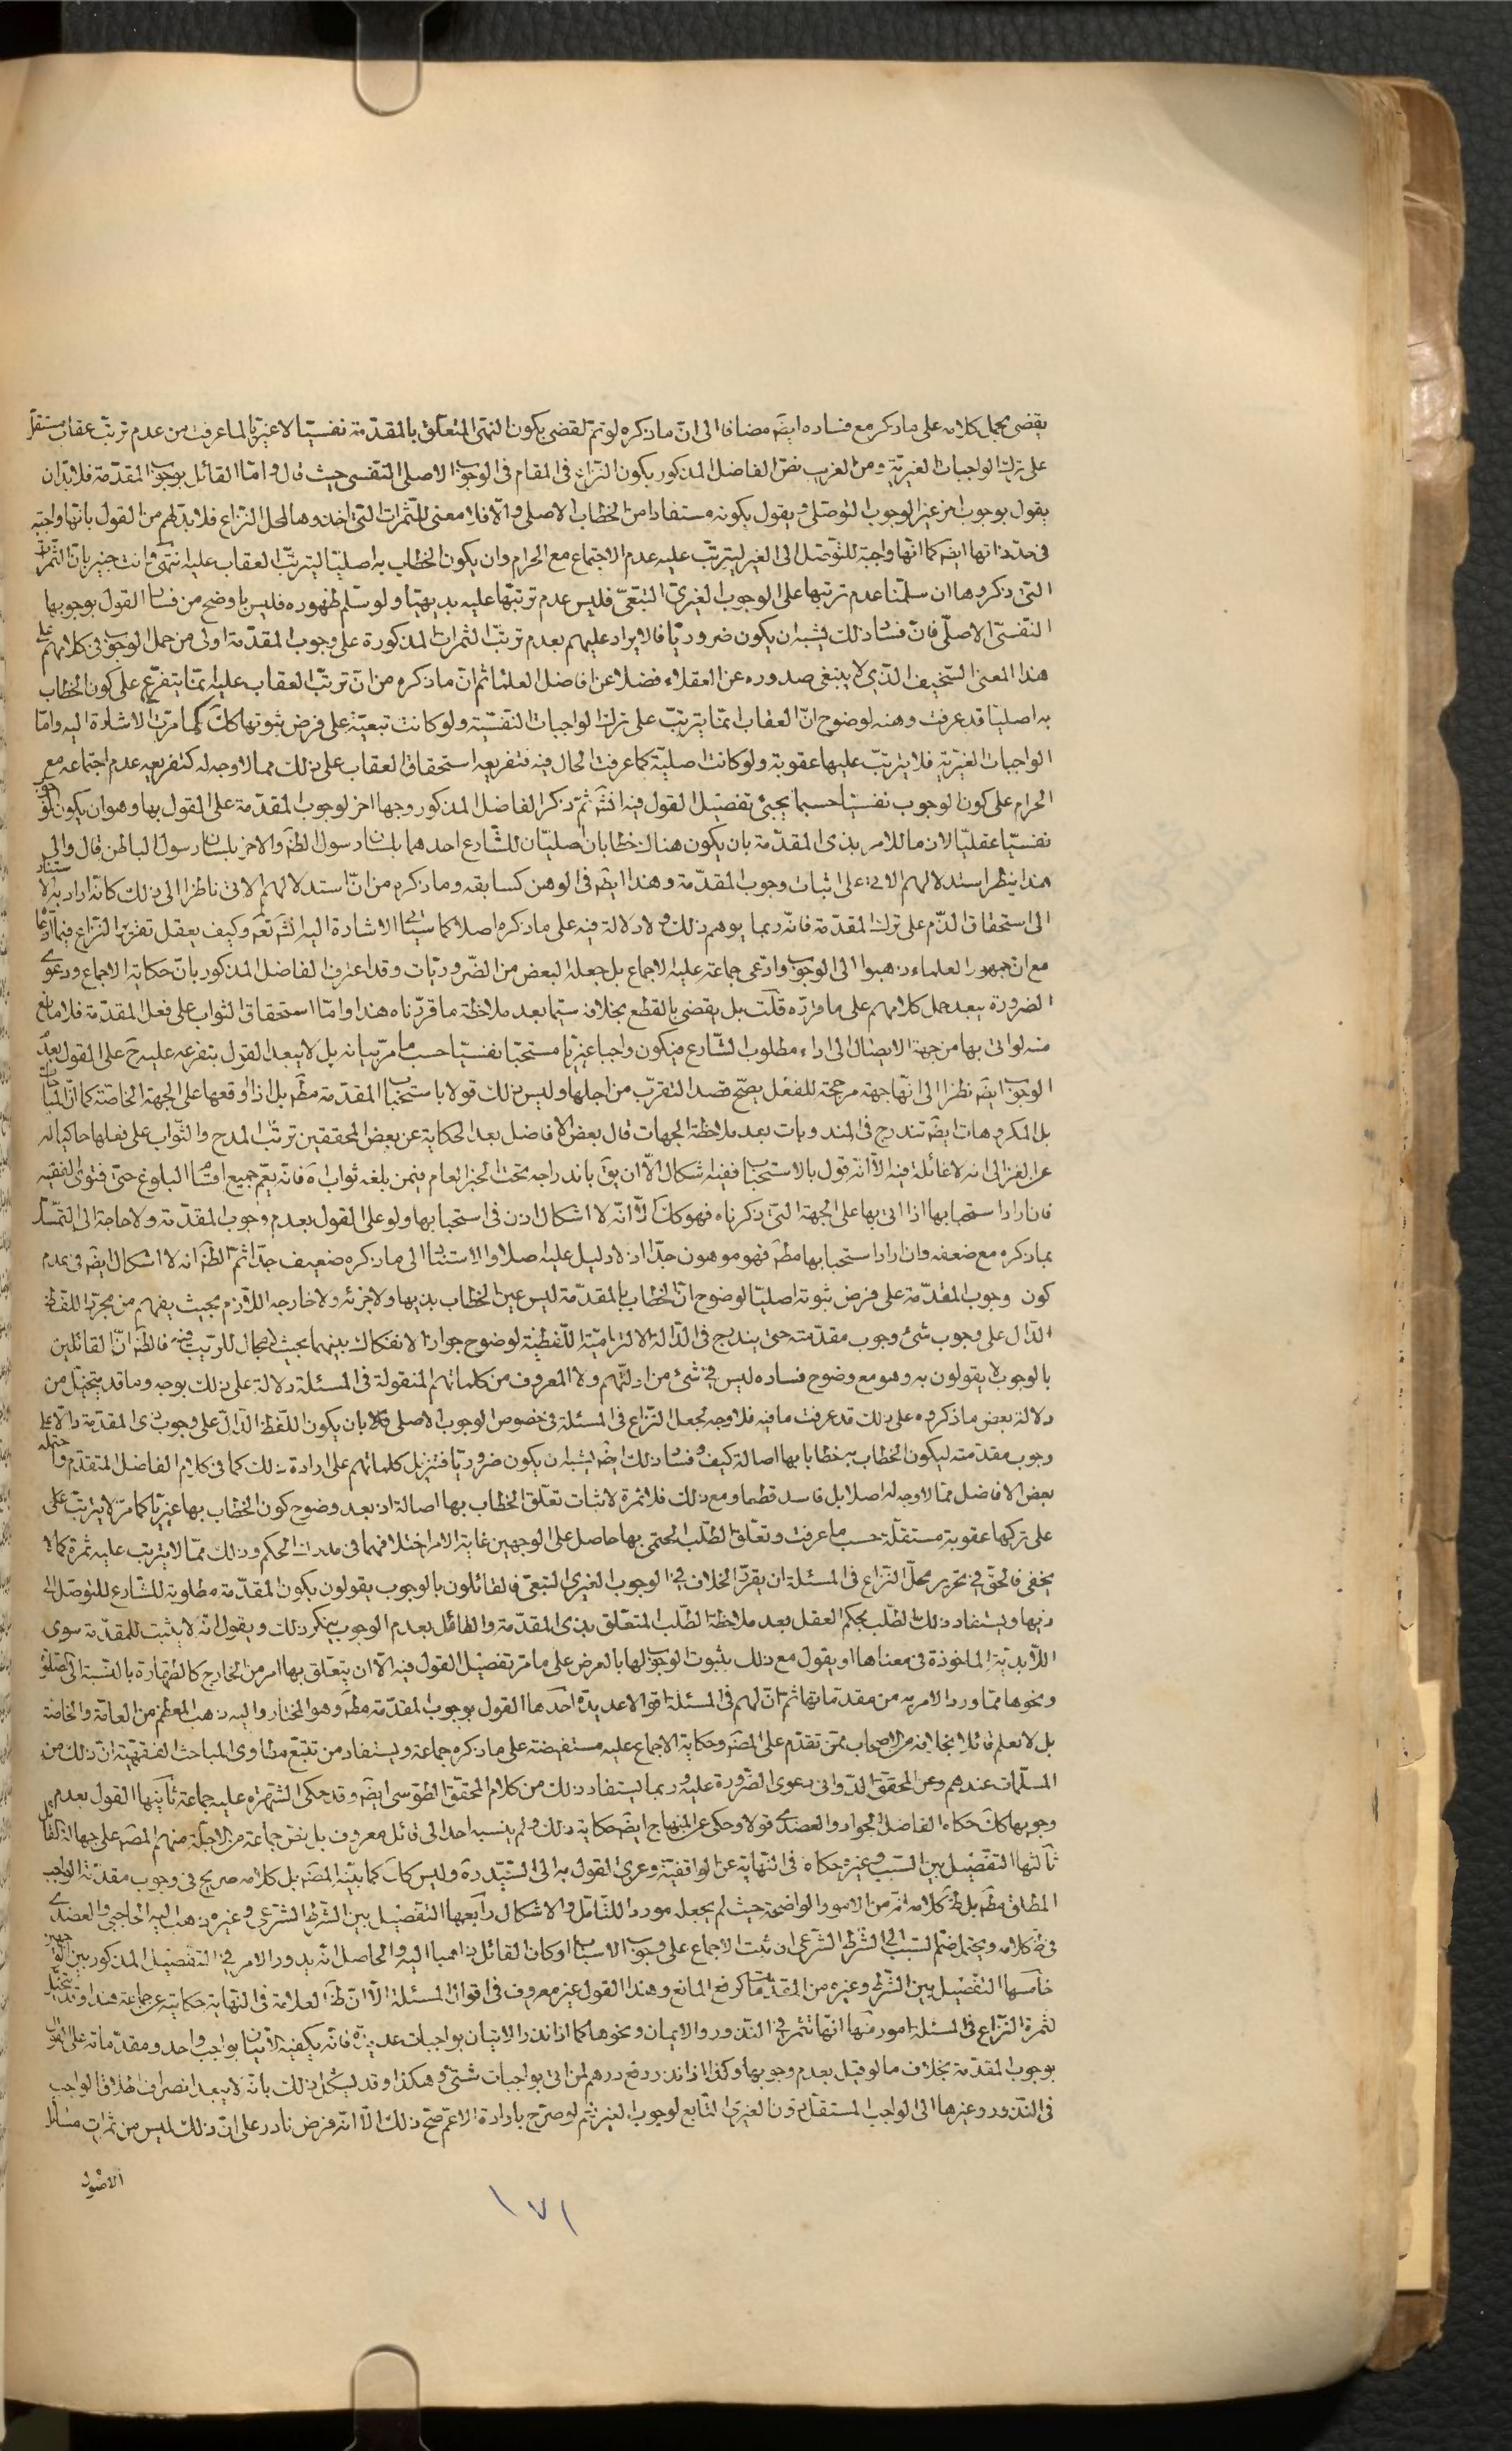 يقضى بحمل كلامه على ما ذكر مع فساده ايضَ مضافا الى انّ ما ذكره لو تمّ لقضى بكون النهى المتعلّق بالمقدّمة نفسيّا لا غيريّا لما عرفت من عدم ترتّب عقاب مستقلّ
على ترك الواجبات الغيريّة ومن الغريب نصّ الفاضل المذكور بكون النزاع فى المقام فى الوجوب الاصلى النفسى حيث قال وامّا القائل بوجوب المقدّمة فلا بدّ ان
يقول بوجوب اخر غير الوجوب التوصّلى ويقول بكونه مستفادا من الخطاب الاصلى والّا فلا معنى للثمرات التى اخذوها لمحل النزاع فلا بدّ لهم من القول بانها واجبة
فى حدّ ذاتها ايضَ كما انّها واجبة للتوصّل الى الغير ليترتّب عليه عدم الاجتماع مع الحرام وان يكون الخطاب به اصليّا ليترتّب العقاب عليه انتهى وانت خبير بانّ الثمرات
التى ذكروها ان سلّمنا عدم ترتبها على الوجوب الغيرى التبعىّ فليس عدم ترتبها عليه بديهيّا ولو سلّم ظهوره فليس باوضح من فساد القول بوجوبها
النّفسىّ الاصلّى فانّ فساد ذلك يشبه ان يكون ضروريّا فالايراد عليهم بعدم ترتّب الثمرات المذكورة على وجوب المقدّمة اولى من حمل الوجوب فى كلامهم على
هذا المعنى السّخيف الّذى لا ينبغى صدوره عن العقلاء فضلا عن افاضل العلماء ثم انّ ما ذكره من انّ ترتّب العقاب عليه ممّا يتفرّع على كون الخطاب
به اصليّا قد عرفت وهنه لوضوح انّ العقاب انمّا يترتّب على ترك الواجبات النّفسيّة ولو كانت تبعيّة على فرض ثبوتها كك كما مرّت الاشارة اليه وامّا
الواجبات الغيريّة فلا يترتّب عليها عقوبة ولو كانت اصليّة كما عرفت الحال فيه فتفريعه استحقاق العقاب على ذلك مما لا وجه له كتفريعه عدم اجتماعه مع
الحرام على كون الوجوب نفسيّا حسبما يجئ تفصيل القول فيه انشَ ثمّ ذكر الفاضل المذكور وجها اخر لوجوب المقدّمة على القول بها وهو ان يكون الوجوب
نفسيّا عقليّا لازما للامر بذى المقدّمة بان يكون هناك خطابان اصليّان للشّارع احدهما بلسان رسول الظَ والاخر بلسان رسول الباطن قال والى
هذا ينظر استدلالهم الاتى على اثبات وجوب المقدّمة وهذا ايضَ فى الوهن كسابقه وما ذكره من انّ استدلالهم الاتى ناظر الى ذلك كانّه اراد به الاستناد
الى استحقاق الذّم على ترك المقدّمة فانّه ربما يوهم ذلك ولا دلالة فيه على ما ذكره اصلا كما سياتى الاشارة اليه انشَ تعَ وكيف يعقل تقرير النزاع فيما ادعاه
مع ان جمهور العلماء ذهبوا الى الوجوب وادّعى جماعة عليه الاجماع بل جعله البعض من الضّروريّات وقد اعترف الفاضل المذكور بانّ حكاية الاجماع ودعوى
الضرورة يبعد حمل كلامهم على ما قرّره قلت بل يقضى بالقطع بخلافه سيّما بعد ملاحظة ما قرّرناه هذا وامّا استحقاق الثواب على فعل المقدّمة فلا مانع
منه لو اتى بها من جهة الايصال الى اداء مطلوب الشّارع فيكون واجبا غيريّا مستحبّا نفسيّا حسب ما مرّ بيانه بل لا يبعد القول بتفرعه عليه حَ على القول بعدم
الوجوب ايضَ نظرا الى انّها جهة مرجحة للفعل يصحّ قصد التقرّب من اجلها وليس ذلك قولا باستحباب المقدّمة مطَ بل اذا اوقعها على الجهة الخاصّة كما انّ المباحات
بل المكروهات ايضَ تندرج فى المندوبات بعد ملاحظة الجهات قال بعض الافاضل بعد الحكاية عن بعض المحققين ترتّب المدح والثّواب على فعلها حاكيا له
عن الغزالى انه لا غائلة فيه الّا انّه قول بالاستحباب ففيه اشكال الّا ان يقَ باندراجه تحت الخبر العام فيمن بلغه ثواب اه فانّه يعّم جميع اقسام البلوغ حتّى فتوى الفقيه
فان اراد استحبابها اذا اتى بها على الجهة التى ذكرناه فهو كك الّا انّه لا اشكال اذن فى استحبابها ولو على القول بعدم وجوب المقدّمة ولا حاجة الى التمسّك
بما ذكره مع ضعفه وان اراد استحبابها مطَ فهو موهون جدّا اذ لا دليل عليه اصلا والاستناد الى ما ذكره ضعيف جدّا ثم الظَ انه لا اشكال ايضَ فى عدم
كون وجوب المقدّمة على فرض ثبوته اصليّا لوضوح انّ الخطاب بالمقدّمة ليس عين الخطاب بذيها ولا جزئه ولا خارجه اللّازم بحيث يفهم من مجرّد اللّفظ
الدّال على وجوب شئ وجوب مقدّمته حتى يندرج فى الدّلالة الالتزاميّة اللّفظيّة لوضوح جواز الانفكاك بينهما بحيث لا مجال للرّيب فيه فالظَ انّ القائلين
بالوجوب لا يقولون به وهو مع وضوح فساده ليس فى شئ من ادلّتهم ولا المعروف من كلماتهم المنقولة فى المسئلة دلالة على ذلك بوجه وما قد يتخيّل من
دلالة بعض ما ذكروه على ذلك قد عرفت ما فيه فلا وجه لجعل النّزاع فى المسئلة فى خصوص الوجوب الاصلى بان يكون اللّفظ الدّالّ على وجوب ذى المقدّمة دالّا على
وجوب مقدّمته ليكون الخطاب به خطابا بها اصالة كيف وفساد ذلك ايضَ يشبه ان يكون ضروريّا فتنزيل كلماتهم على ارادة ذلك كما فى كلام الفاضل المتقدّم واحتمله
بعض الافاضل ممّا لا وجه له اصلا بل فاسد قطعا ومع ذلك فلا ثمرة لاثبات تعلّق الخطاب بها اصالة اذ بعد وضوح كون الخطاب بها غيريّا كما مرّ لا يترتّب على
على تركها عقوبة مستقلّة حسب ما عرفت وتعلّق الطّلب الحتمى بها حاصل على الوجهين غاية الامر اختلافهما فى مدرك الحكم وذلك ممّا لا يترتب عليه ثمرة كما لا
يخفى فالحقّ فى تحرير محلّ النّزاع فى المسئلة ان يقرّر الخلاف فى الوجوب الغيرى التبعّى فالقائلون بالوجوب يقولون بكون المقدّمة مطلوبة للشّارع للتوصّل الى
ذيها ويستفاد ذلك الطّلب بحكم العقل بعد ملاحظة الطّلب المتعلّق بذى المقدّمة والقائل بعدم الوجوب ينكر ذلك ويقول انّه لا يثبت للمقدّمة سوى
اللّابديّة الماخوذة فى معناها او يقول مع ذلك بثبوت الوجوب لها بالعرض على ما مرّ تفصيل القول فيه الّا ان يتعلّق بها امر من الخارج كالطّهارة بالنّسبة الى الصّلوة
ونحوها ممّا ورد الامر به من مقدّماتها ثم انّ لهم فى المسئلة اقوالا عديدة احدها القول بوجوب المقدّمة مطَ وهو المختار واليه ذهب المعظم من العامّة والخاصّة
بل لا نعلم قائلا بخلافه من الاصحاب ممّن تقدّم على المصَ وحكاية الاجماع عليه مستفيضة على ما ذكره جماعة ويستفاد من تتبّع مطاوى المباحث الفقهيّة انّ ذلك من
المسلّمات عندهم وعن المحقّق الدّوانى دعوى الضّرورة عليه وربما يستفاد ذلك من كلام المحقّق الطوسى ايضَ وقد حكى الشّهرة عليه جماعة ثانيها القول بعدم
وجوبها كك حكاه الفاضل الجواد والعضدى قولا وحكى عن المنهاج ايضَ حكاية ذلك ولم ينسبه احد الى قائل معروف بل نصّ جماعة من الاجلّة منهم المصَ على جهالة القائل
ثالثها التفصيل بين السّبب وغيره حكاه فى النّهاية عن الواقفيّة وعزى القول به الى السّيّد ره وليس كك كما بيّنه المصَ بل كلامه صريح فى وجوب مقدّمة الواجب
المطلق مطَ بل ظَ كلامه انّه من الامور الواضحة حيث لم يجعله موردا للتّامّل والاشكال رابعها التفصيل بين الشرط الشّرعى وغيره ذهب اليه الحاجبى والعضدى
فى ظَ كلامه ويحتمل ضمّ السّبب الى الشّرط الشّرعى ان ثبت الاجماع على وجوب الاسباب او كان القائل ذاهبا اليه والحاصل انّه يدور الامر فى التفصيل المذكور بين الوجهين
خامسها التفصيل بين الشّرط وغيره من المقدّمات كرفع المانع وهذا القول غير معروف فى اقوال المسئلة الّا انّ ظَ العلامة فى النّهاية حكايته عن جماعة هذا وقد يتخيّل
لثمرة النّزاع فى المسئلة امور منها انّها تثمر فى النّذور والايمان ونحوها كما اذا نذر الاتيان بواجبات عديدة فانّه يكفيه الاتيان بواجب واحد ومقدّماته على القول
بوجوب المقدّمة بخلاف ما لو قيل بعدم وجوبها وكذا اذا نذر دفع درهم لمن اتى بواجبات شتّى وهكذا وقد يشكل ذلك بانّه لا يبعد انصراف اطلاق الواجب
فى النّذور وغيرها الى الواجب المستقلّ دون الغيرى التّابع لوجوب الغير نعم لو صرّح بارادة الاعمّ صحّ ذلك الّا انّه فرض نادر على انّ ذلك ليس من ثمرات مسائل
الاصول
١٧١